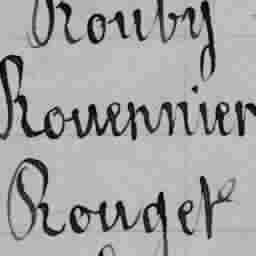 Rouby
Rouennier
Rouget